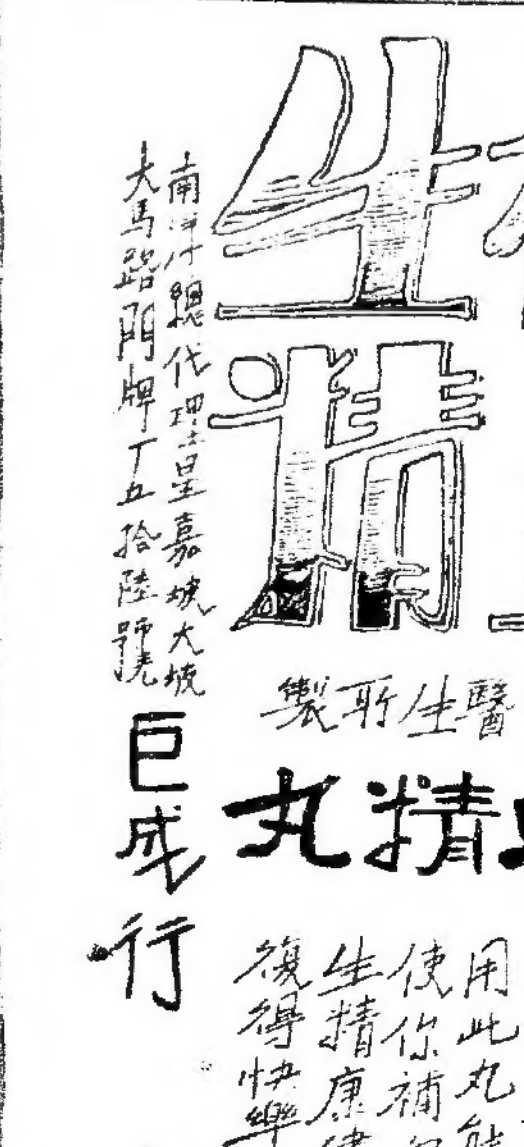 生
精
醫生所製
精丸
用此丸能
使你補
生精康健
復得快樂
南洋總代理星嘉坡大坡
大馬路門牌丁五拾陸號
巨成行